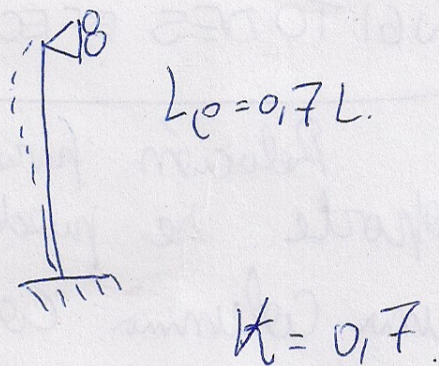 Le = 0,7 L.
K = 0,7.